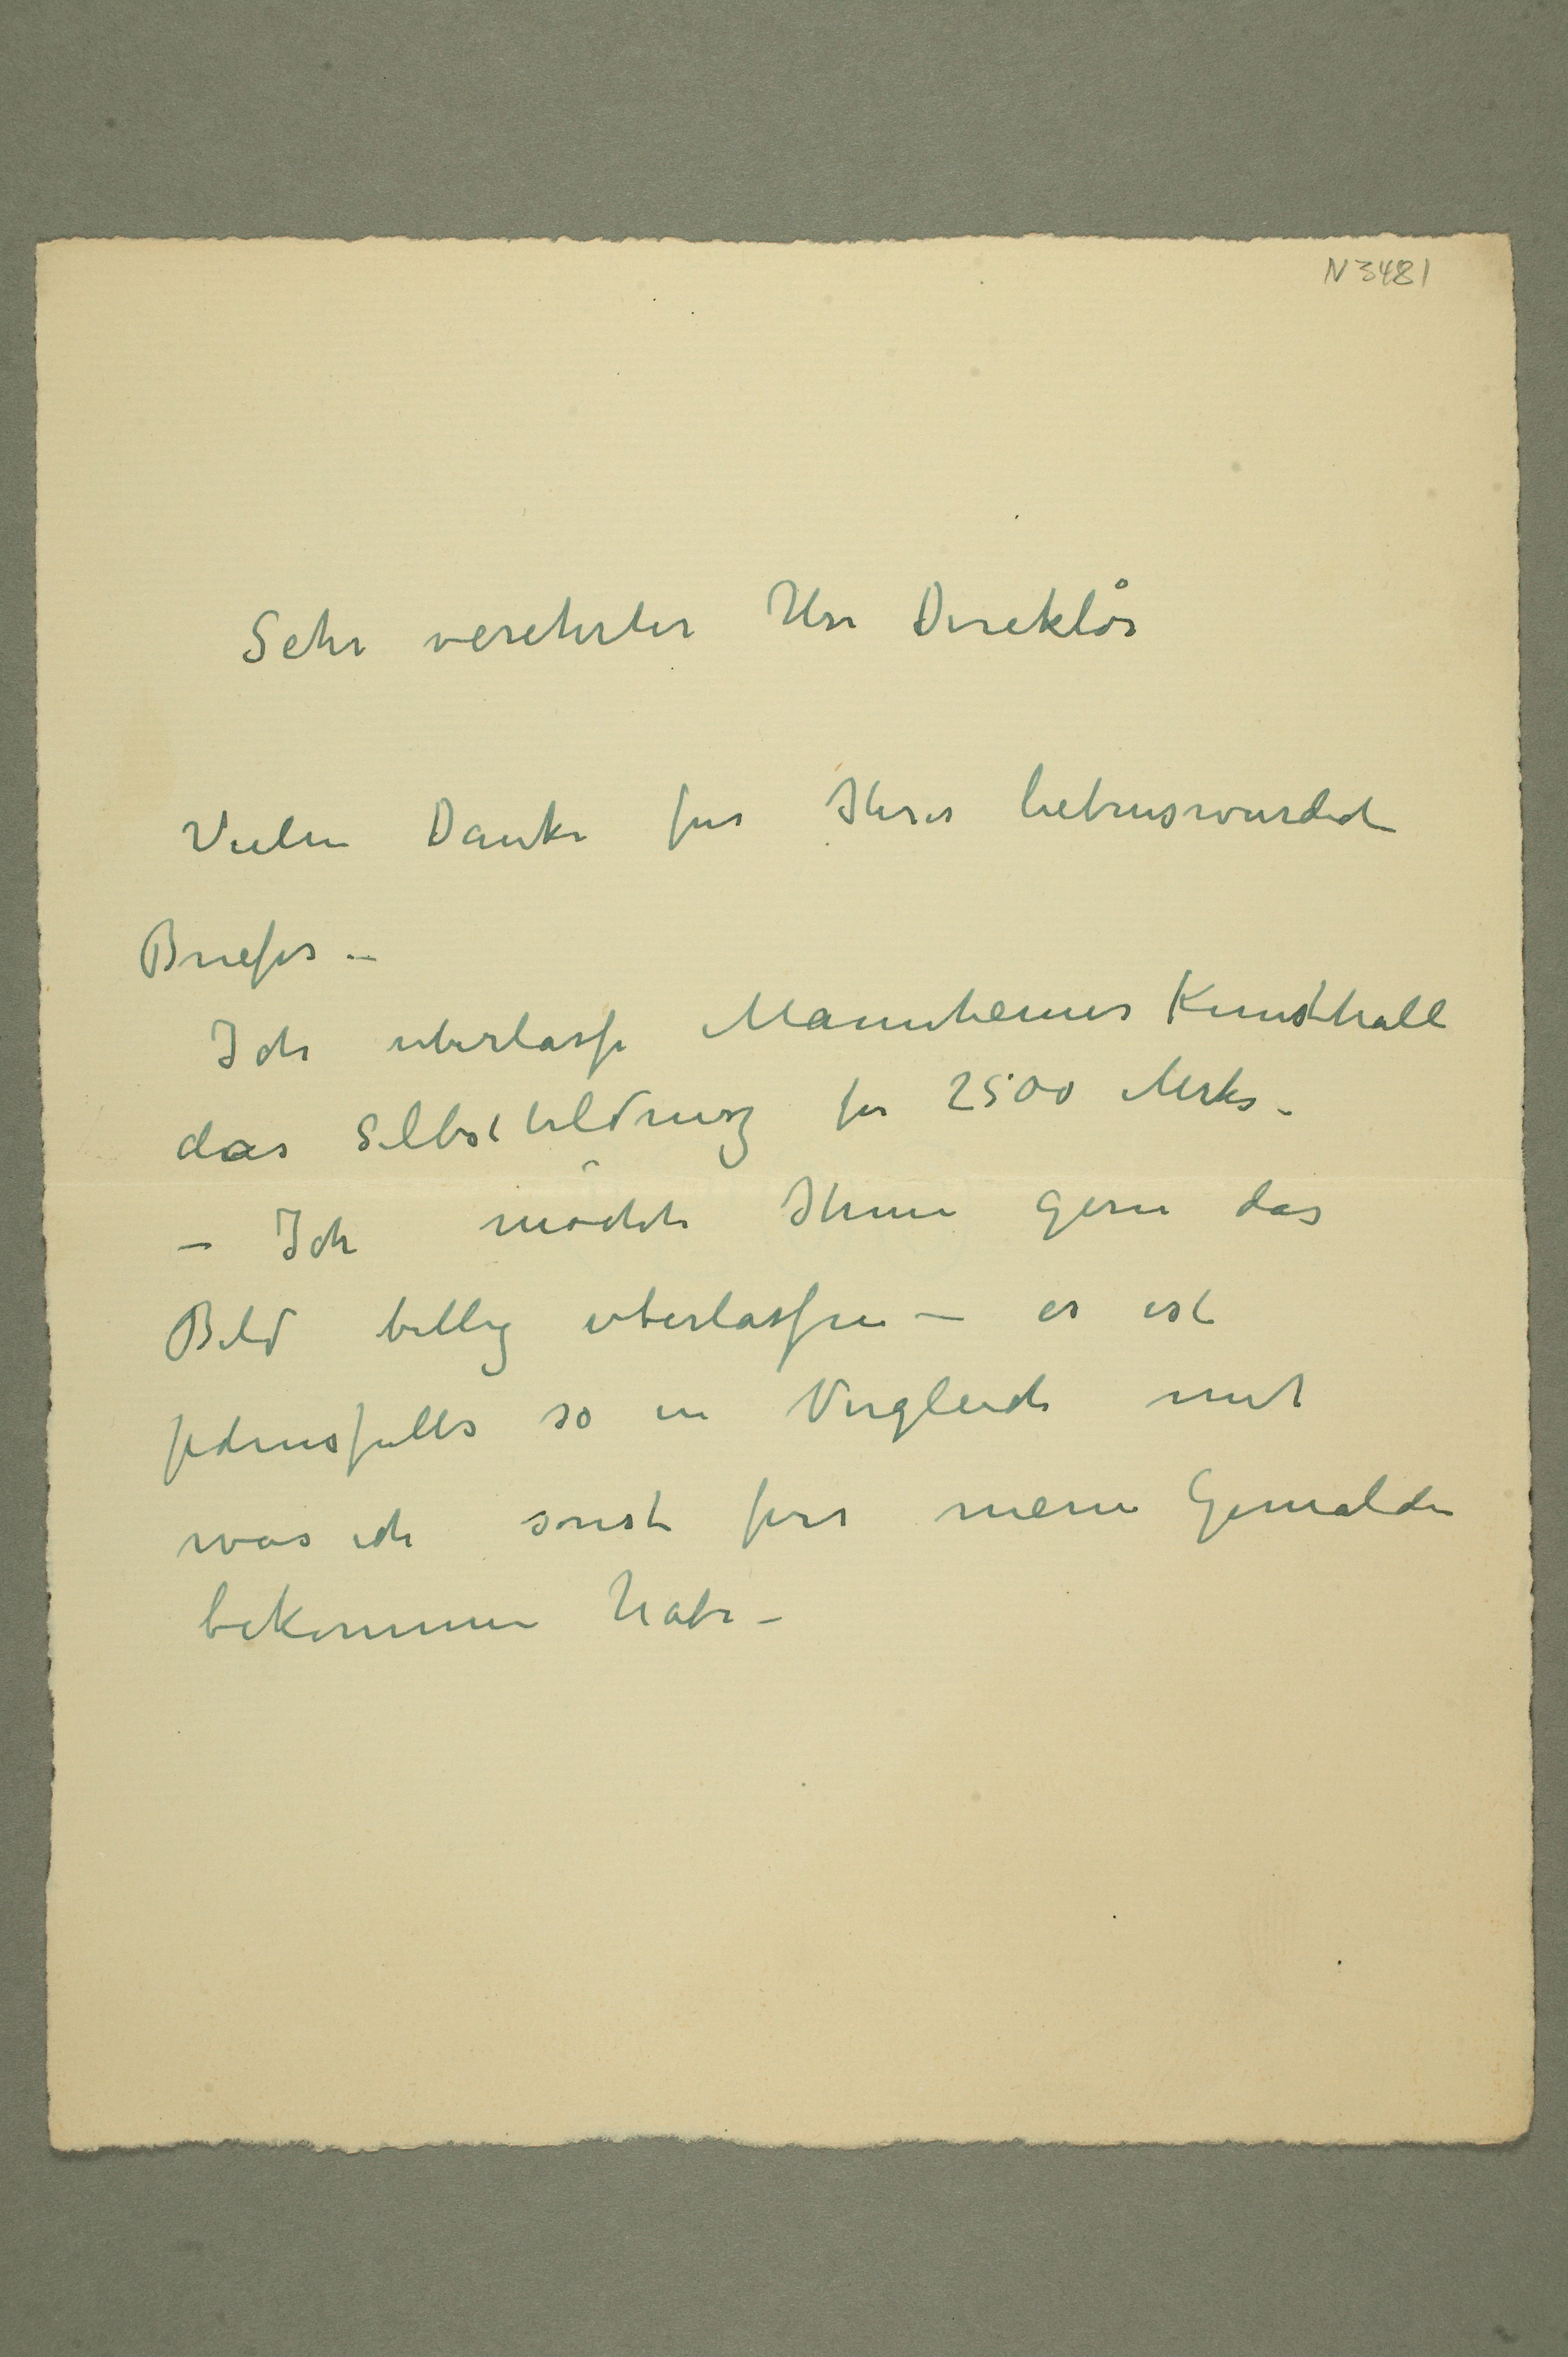 N 3481
Sehr verehrter Herr Direktor
Vielen Danke fur Ihres
Briefes –
Ich uberlasse Mannheimer Kunsthall
das Selbstbildniss for 2500 Mrks –
– Ich möchte Ihnen gern das
Bild billig uberlassen – es ist
jedensfalls so in Vergleich mit
was ich sonst fur meine Gemalde
bekommen habe –